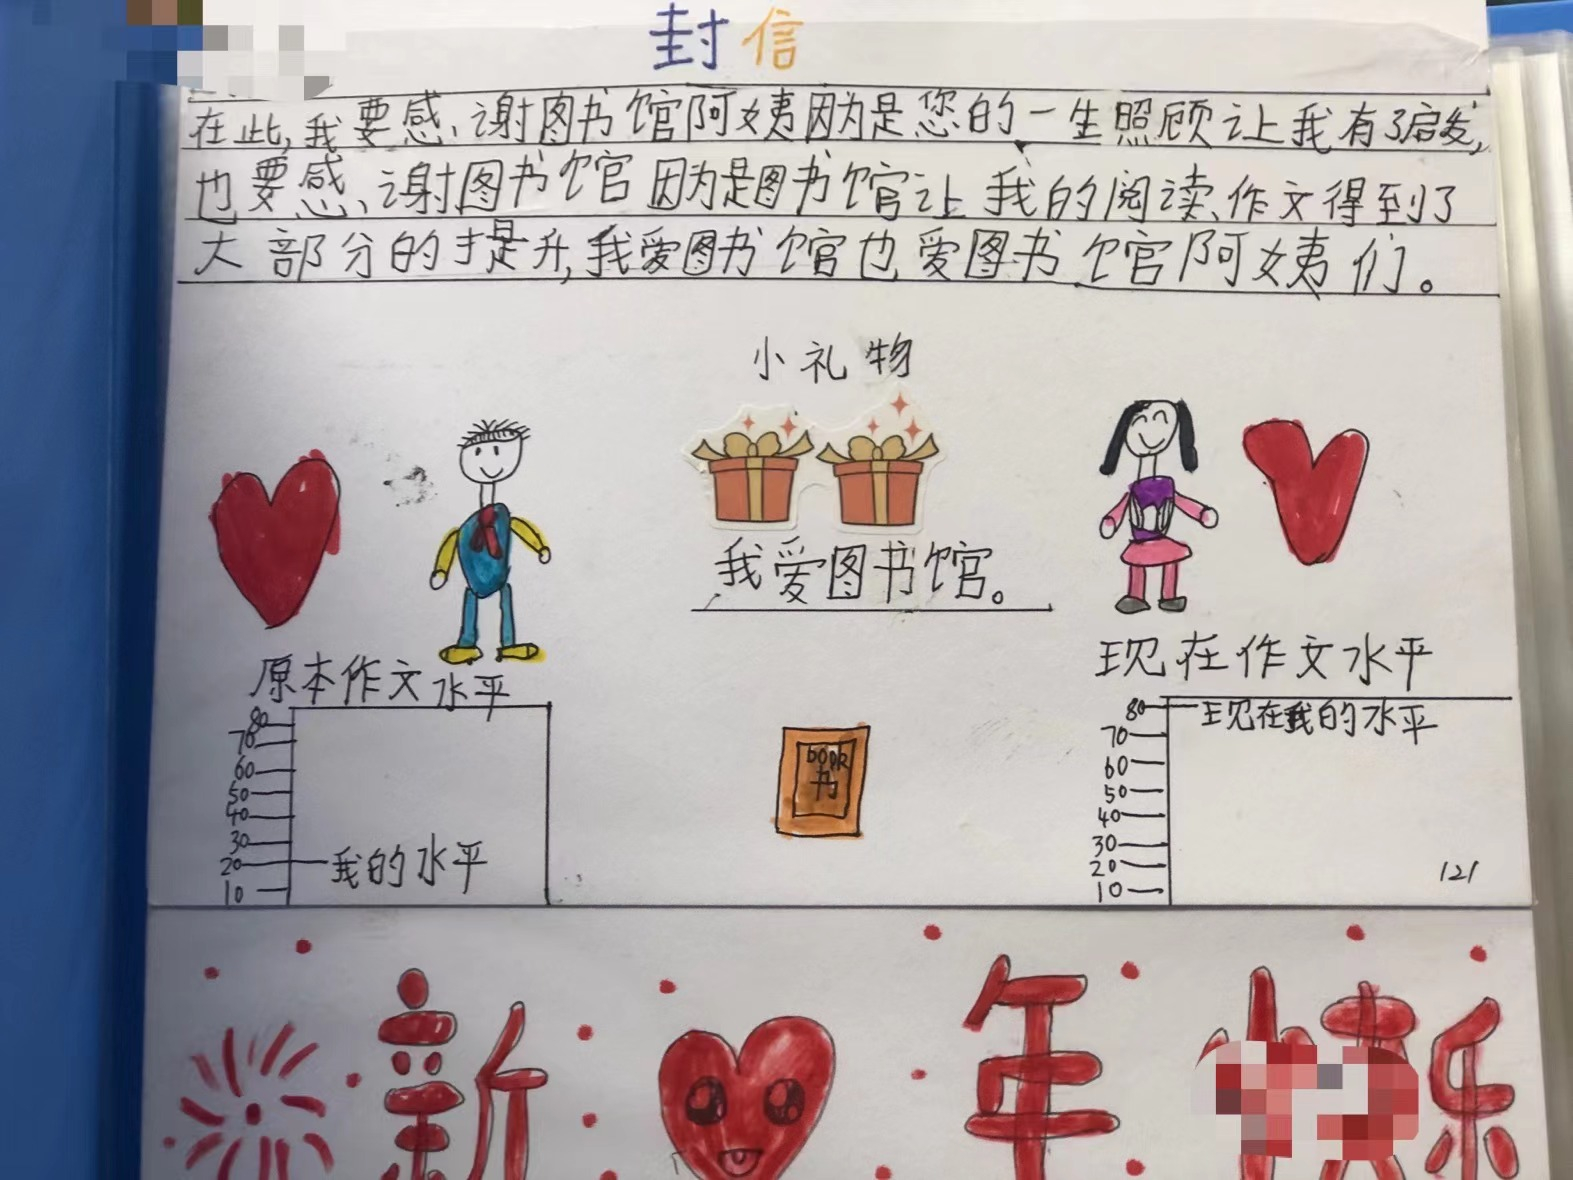 封信
在此,我要感谢图书馆阿姨因为是您的一生照顾让我有了启发,
也要感谢图书馆因为是图书馆让我的阅读、作文得到了
大部分的提升,我爱图书馆也爱图书馆阿姨们。
小礼物
我爱图书馆。
原本作文水平
现在作文水平
80
70
60
50
40
30
20 我的水平
10
BOOK
书
80 现在我的水平
70
60
50
40
30
20
10
121
新年快乐